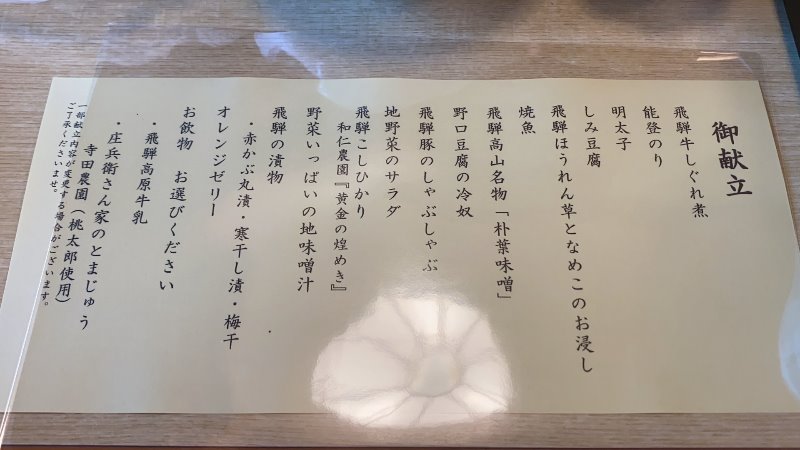 御献立
飛騨牛しぐれ煮
能登のり
明太子
しみ豆腐
飛騨ほうれん草となめこのお浸し
焼魚
飛騨高山名物「朴葉味噌」
野口豆腐の冷奴
飛騨豚のしゃぶしゃぶ
地野菜のサラダ
飛騨こしひかり
和仁農園『黄金の煌めき』
野菜いっぱいの地味噌汁
飛騨の漬物
・赤かぶ丸漬・寒干し漬・梅干
オレンジゼリー
お飲物 お選びください
・飛騨高原牛乳
・庄兵衛さん家のとまじゅう
寺田農園(桃太郎使用)
一部献立内容が変更する場合がございます。
ご了承くださいませ。